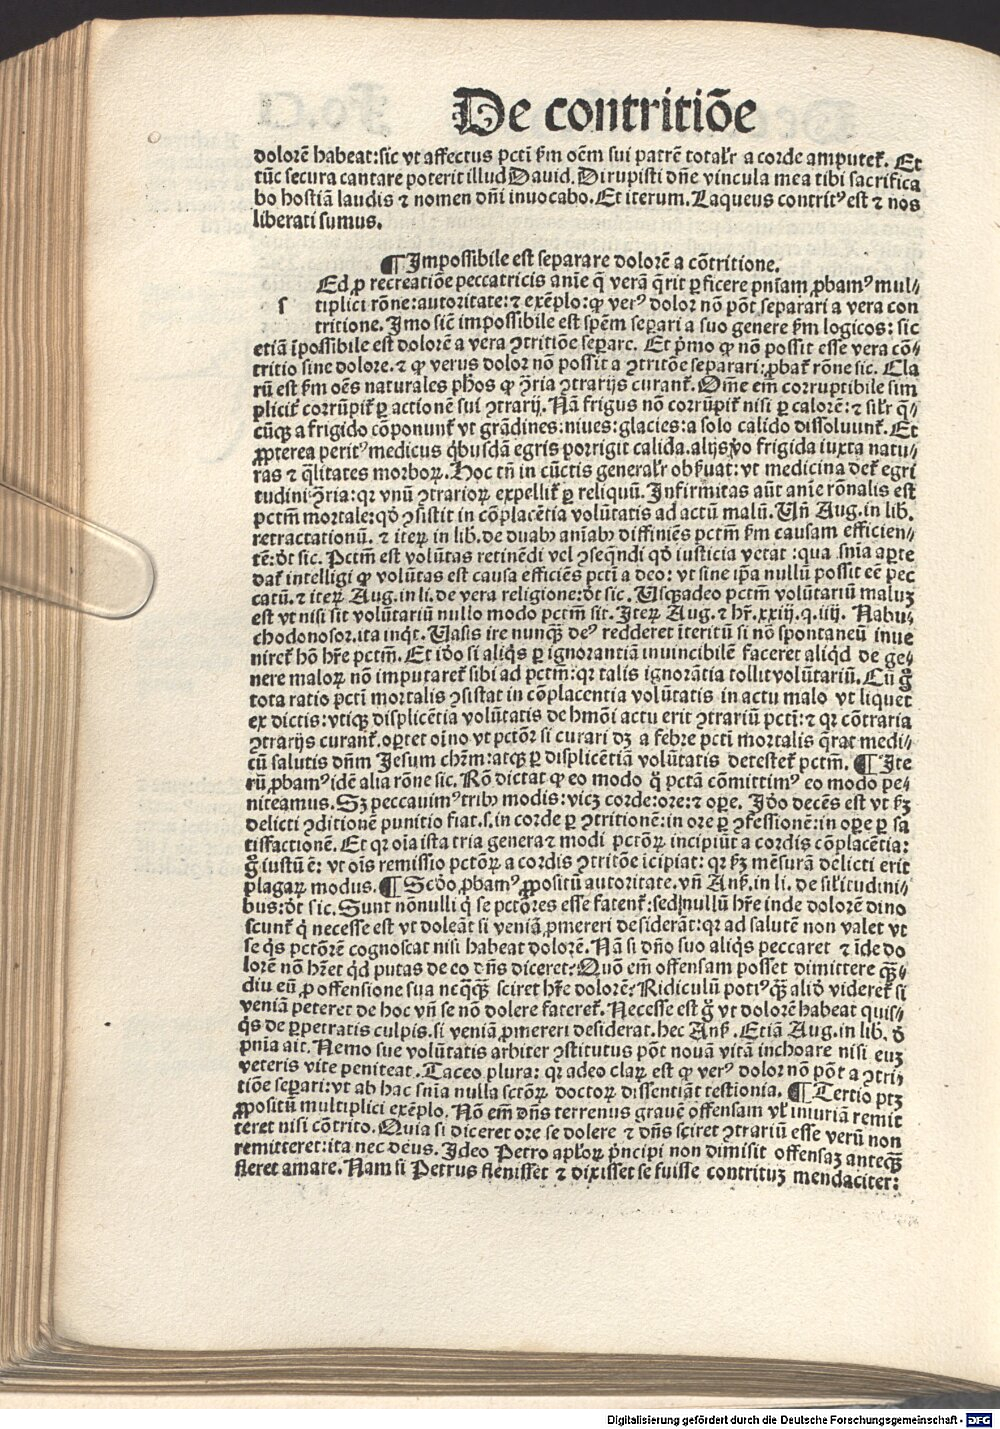 De contritiõe
dolorẽ habeat:sic vt affectus pcti ẜm oẽm sui patrẽ totalr̃ a corde amputet᷑. Et
tũc secura cantare poterit illud Dauid. Dirupisti dñe vincula mea tibi sacrifica
bo hostiã laudis ⁊ nomen dñi inuocabo. Et iterum. Laqueus contritꝰ est ⁊ nos
liberati sumus.
¶ Impossibile est separare dolorẽ a cõtritione.
s Ed ꝓ recreatiõe peccatricis anĩe q̃ verã q̃rit ꝑficere pñiam ꝓbamꝰ mul⸗
tiplici rõne:autoritate:⁊ exẽplo:ꝙ verꝰ dolor nõ põt separari a vera con
tritione. Imo siẽ impossibile est spẽm separi a suo genere ẜm logicos: sic
etiã ĩpossibile est dolorẽ a vera ꝯtritiõe separe. Et p̃mo ꝙ nõ possit esse vera cõ⸗
tritio sine dolore. ⁊ ꝙ verus dolor nõ possit a ꝯtritõe separari:ꝓbat᷑ rõne sic. Cla
rũ est ẜm oẽs naturales ph̃os ꝙ ꝯ̃ria ꝯtrarijs curant᷑. Om̃e em̃ corruptibile sim
plicit᷑ corrũpit᷑ ꝑ actionẽ sui ꝯtrarij. Nã frigus nõ corrũpit᷑ nisi ꝑ calorẽ:⁊ silr̃ q̃⸗
cũqꝫ a frigido cõponunt᷑ vt grãdines:niues:glacies:a solo calido dissoluunt᷑. Et
ꝓpterea peritꝰ medicus q̇busdã egris porrigit calida.alijs ṽo frigida iuxta natu⸗
ras ⁊ q̃litates morboꝝ. Hoc tñ in cũctis generalr̃ obẜuat:vt medicina det᷑ egri
tudini ꝯ̃ria:qꝛ vnũ ꝯtrarioꝝ expellit᷑ ꝑ reliquũ. Infirmitas aũt anĩe rõnalis est
pctm̃ mortale:qď ꝯsistit in cõplacẽtia volũtatis ad actũ malũ. Vñ Aug. in lib.
retractationũ. ⁊ iteꝝ in lib. de duabꝰ aniabꝰ diffiniẽs pctm̃ ẜm causam efficien⸗
tẽ:ďt sic. Pctm̃ est volũtas retinẽdi vel ꝯseq̃ndi qď iusticia vetat :qua sñia aꝑte
dat᷑ intelligi ꝙ volũtas est causa efficiẽs pcti a deo: vt sine ip̃a nullũ possit eẽ pec
catũ.⁊ iteꝝ Aug. in li. de vera religione:ďt sic. Vsqꝫadeo pctm̃ voluntariũ maluꝫ
est vt nisi sit voluntariũ nullo modo pctm̃ sit. Iteꝝ Aug. ⁊ hr̃. xxiij. q. iiij. Nabu⸗
chodonosor. ita inq̇t. Vasis ire nunqꝫ̃ deꝰ redderet ĩteritũ si nõ spontaneũ inue
niret᷑ hõ hr̃e pctm̃. Et iďo si aliq̇s ꝑ ignorantiã inuincibilẽ faceret aliqď de ge⸗
nere maloꝝ nõ imputaret᷑ sibi ad pctm̃:qꝛ talis ignorãtia tollit volũtariũ. Cũ g̊
tota ratio pcti mortalis ꝯsistat in cõplacentia volũtatis in actu malo vt liquet
ex dictis:vtiqꝫ displicẽtia volũtatis de hmõi actu erit ꝯtrariũ pcti:⁊ qꝛ cõntraria
ꝯtrarijs curant᷑. oꝑtet oĩno vt pctõr si curari dꝫ a febre pcti mortalis q̃rat medi⸗
cũ salutis dñm Jesum chr̃m:atqꝫ ꝑ displicẽtiã volũtatis detestet᷑ pctm̃. ¶ Ite
rũ ꝓbamꝰ idẽ alia rõne sic. Rõ dictat ꝙ eo modo q̊ pctã cõmittimꝰ eo modo pe⸗
niteamus. Sꝫ peccauimꝰ tribꝰ modis:vicꝫ corde:ore:⁊ oꝑe. Iďo decẽs est vt ẜꝫ
delicti ꝯditionẽ punitio fiat.s.in corde ꝑ ꝯtritionẽ:in ore ꝑ ꝯfessionẽ:in oꝑe ꝑ sa
tisfactionẽ. Et qꝛ oĩa ista tria genera ⁊ modi pctõꝝ incipiũt a cordis cõplacẽtia:
g̊ iustũ ẽ: vt oĩs remissio pctõꝝ a cordis ꝯtritõe ĩcipiat: qꝛ ẜꝫ mẽsurã delicti erit
plagaꝝ modus. ¶ Scďo ꝓbamꝰ ꝓpositũ autoritate. vñ Anẜ. in li. de sil᷑itudini⸗
bus:ďt sic. Sunt nõnulli q̇ se pctõres esse fatent᷑:sed nullũ hr̃e inde dolorẽ dino
scunt᷑ q̇ necesse est vt doleãt si veniã ꝓmereri desiderãt:qꝛ ad salutẽ non valet vt
se q̇s pctõrẽ cognoscat nisi habeat dolorẽ. Nã si dño suo aliq̇s peccaret ⁊ ĩde do
lorẽ nõ hr̃et q̇d putas de eo dñs diceret? Quõ em̃ offensam posset dimittere qꝫ̃⸗
diu eũ ꝓ offensione sua neq̃qꝫ̃ sciret hr̃e dolorẽ? Ridiculũ potiꝰqꝫ̃ aliď videret᷑ si
veniã peteret de hoc vñ se nõ dolere fateret᷑. Necesse est g̊ vt dolorẽ habeat quis⸗
q̇s de ꝑpetratis culpis. si veniã ꝓmereri desiderat. hec Anẜ. Etiã Aug. in lib. ď
pñia ait. Nemo sue volũtatis arbiter ꝯstitutus põt nouã vitã inchoare nisi euꝫ
veteris vite peniteat. Taceo plura: qꝛ adeo claꝝ est ꝙ verꝰ dolor nõ põt a ꝯtri⸗
tiõe separi:vt ab hac sñia nulla sctõꝝ doctoꝝ dissentiãt testĩonia. ¶ Tertio ptꝫ
ꝓpositũ multiplici exẽplo. Nõ em̃ dñs terrenus grauẽ offensam vl᷑ iniuriã remit
teret nisi cõtrito. Quia si diceret ore se dolere ⁊ dñs sciret ꝯtrariũ esse verũ non
remitteret:ita nec deus. Ideo Petro apl̃oꝝ p̃ncipi non dimisit offensaꝫ anteqꝫ̃
fleret amare. Nam si Petrus fleuisset ⁊ dixisset se fuisse contrituꝫ mendaciter:
Digitalisierung gefördert durch die Deutsche Forschungsgemeinschaft - DFG